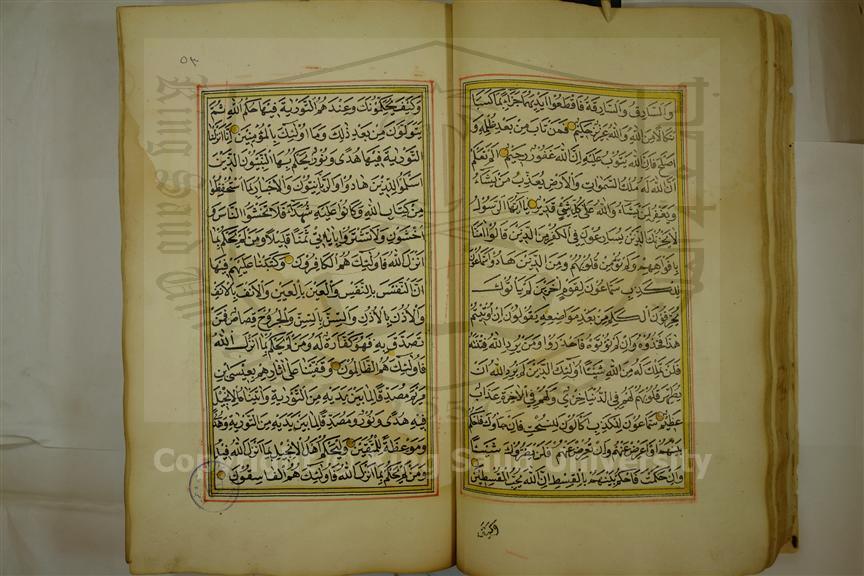 والسارق والسارقة فاقطعوا ايديهما جزاء بما كسبا
نكالا من الله والله عزيز حكيم فمن تاب من بعد ظلمه و
اصلح فان الله يتوب عليه ان الله غفور رحيم الم تعلم
ان الله له ملك السموات والارض يعذب من يشاء
ويغفر لمن يشاء والله على كل شئ قدير يا ايها الرسول
لا يحزنك الذين يسارعون في الكفر من الذين قالوا امنا
بافواههم ولم تؤمن قلوبهم ومن الذين هادوا سماعون
للكذب سماعون لقوم اخرين لم ياتوك
يحرفون الكلم من بعد مواضعه يقولون ان اوتيتم
هذا فخذوه وان لم تؤتوه فاحذروا ومن يرد الله فتنته
فلن تملك له من الله شيئا اولئك الذين لم يرد الله ان
يطهر قلوبهم لهم في الدنيا خزى ولهم في الاخرة عذاب
عظيم سماعون للكذب اكالون للسحت فان جاؤك فاحكم
بينهم او اعرض عنهم وان تعرض عنهم فلن يضروك شيئا
وان حكمت فاحكم بينهم بالقسط ان الله يحب المقسطين
وكيف
٥٣
وكيف يحكمونك وعندهم التورية فيها حكم الله ثم
يتولون من بعد ذلك وما اولئك بالمؤمنين انا انزلنا
التورية فيها هدى ونور يحكم بها النبيون الذين
اسلموا للذين هادوا والربانيون والاحبار بما استحفظوا
من كتاب الله وكانوا عليه شهداء فلا تخشوا الناس و
اخشون ولا تشتروا باياتي ثمنا قليلا ومن لم يحكم بما
انزل الله فاولئك هم الكافرون وكتبنا عليهم فيها
ان النفس بالنفس والعين بالعين والانف بالانف
والاذن بالاذن والسن بالسن والجروح قصاص فمن
تصدق به فهو كفارة له ومن لم يحكم بما انزل الله
فاولئك هم الظالمون وقفينا على اثارهم بعيسى بن
مريم مصدقا لما بين يديه من التورية واتيناه الانجيل
فيه هدى ونور ومصدقا لما بين يديه من التورية وهدى
وموعظة للمتقين وليحكم اهل الانجيل بما انزل الله فيه
ومن لم يحكم بما انزل الله فاولئك هم الفاسقون
Copyright © King Saud University